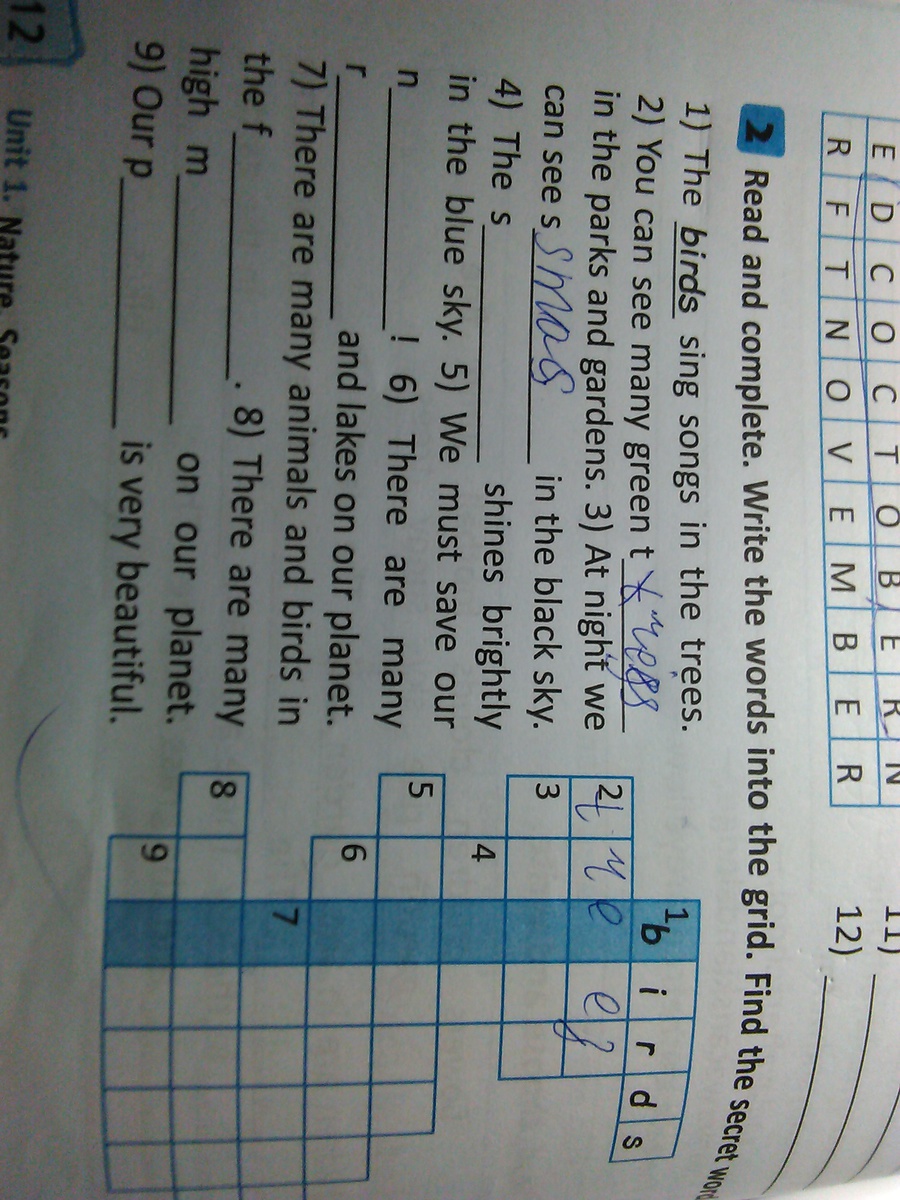 E D C O C T O B E R N
R F T N O V E M B E R
11)
12)
2 Read and complete. Write the words into the grid. Find the secret word
1) The birds sing songs in the trees.
2) You can see many green t trees
in the parks and gardens. 3) At night we
can see s smas in the black sky.
4) The s shines brightly
in the blue sky. 5) We must save our
n ! 6) There are many
r and lakes on our planet.
7) There are many animals and birds in
the f . 8) There are many
high m on our planet.
9) Our p is very beautiful.
1 b i r d s
2 t r e e s
3
4
5
6
7
8
9
12 Unit 1. Nature. Seasons